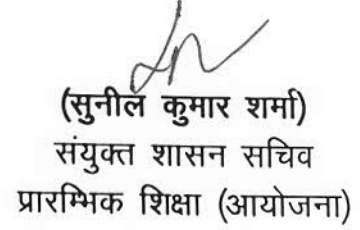 (सुनील कुमार शर्मा)
संयुक्त शासन सचिव
प्रारम्भिक शिक्षा (आयोजना)